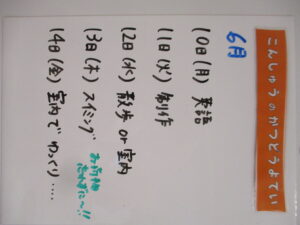 こんしゅうのかつどうよてい
6月
10日(月) 英語
11日(火) 創作
12日(水) 散歩or室内
13日(木) スイミング
14日(金) 室内でゆっくり....